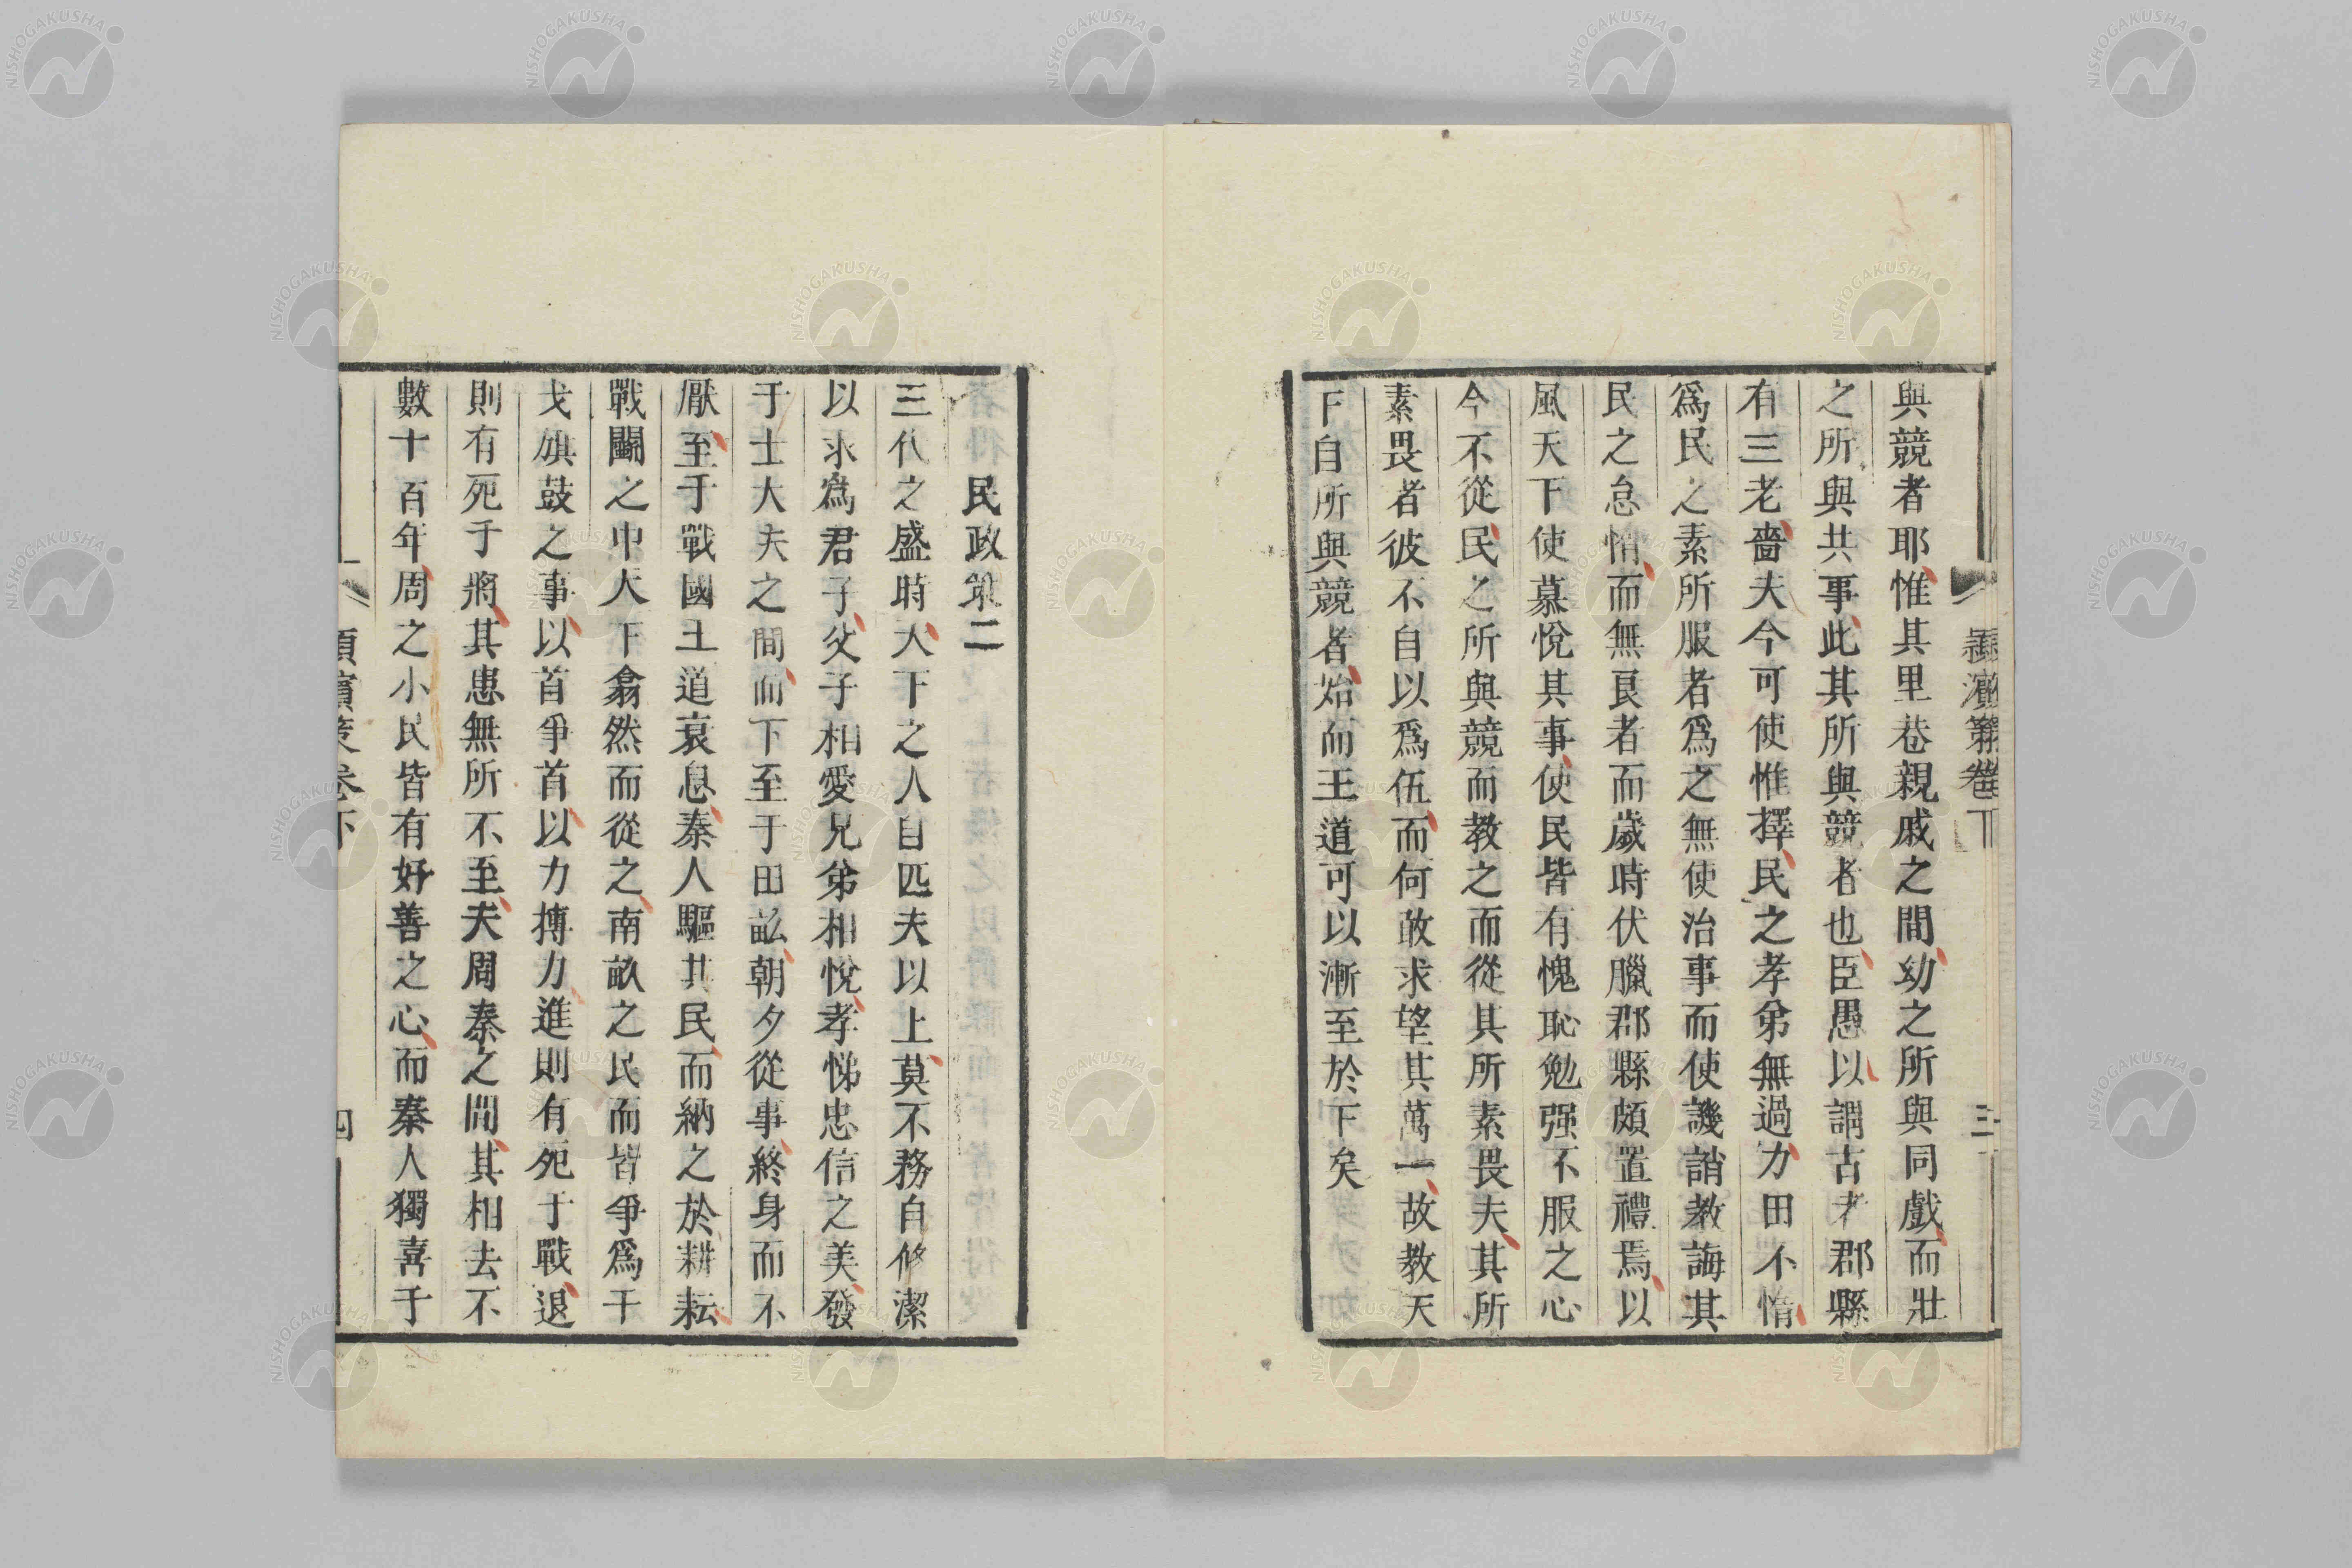 與競者耶惟其里巷親戚之間幼之所與同戲而壯
之所與共事此其所與競者也臣愚以謂古者郡縣
有三老嗇夫今可使惟擇民之孝弟無過力田不惰
爲民之素所服者爲之無使治事而使譏誚教誨其
民之怠惰而無良者而歲時伏臘郡縣頗置禮焉以
風天下使慕悅其事使民皆有愧恥勉强不服之心
今不從民之所與競而教之而從其所素畏夫其所
素畏者彼不自以爲伍而何敢求望其萬一故教天
下自所與競者始而王道可以漸至於下矣
三
民政策二
三代之盛時天下之人自匹夫以上莫不務自修潔
以求爲君子父子相愛兄弟相悅孝悌忠信之美發
于士大夫之間而下至于田畝朝夕從事終身而不
厭至于戰國王道衰息秦人驅其民而納之於耕耘
戰鬭之中天下翕然而從之南畝之民而皆爭爲干
戈旗鼓之事以首爭首以力搏力進則有死于戰退
則有死于將其患無所不至夫周秦之間其相去不
數十百年周之小民皆有好善之心而秦人獨喜于
潁濱策卷下
四
NISHOGAKUSHA